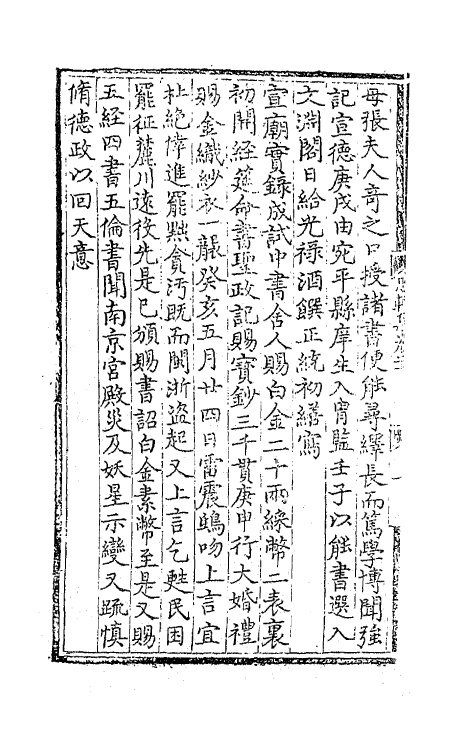 母張夫人奇之口授諸書便能尋繹長而篤學博聞強
記宣德庚戌由宛平縣庠生入胄監壬子以能書選入
文淵閣日給光祿酒饌正統初繕寫
宣廟實錄成試中書舍人賜白金二十兩綵幣二表裏
初開經筵命書聖政記賜寶鈔三千貫庚申行大婚禮
賜金織紗衣一襲癸亥五月廿四日雷震鴟吻上言宜
杜絕倖進罷黜貪汚既而閩浙盜起又上言乞甦民困
罷征麓川遠役先是已頒賜書詔白金素幣至是又賜
五經四書五倫書聞南京宮殿災及妖星示變又疏慎
脩德政以回天意